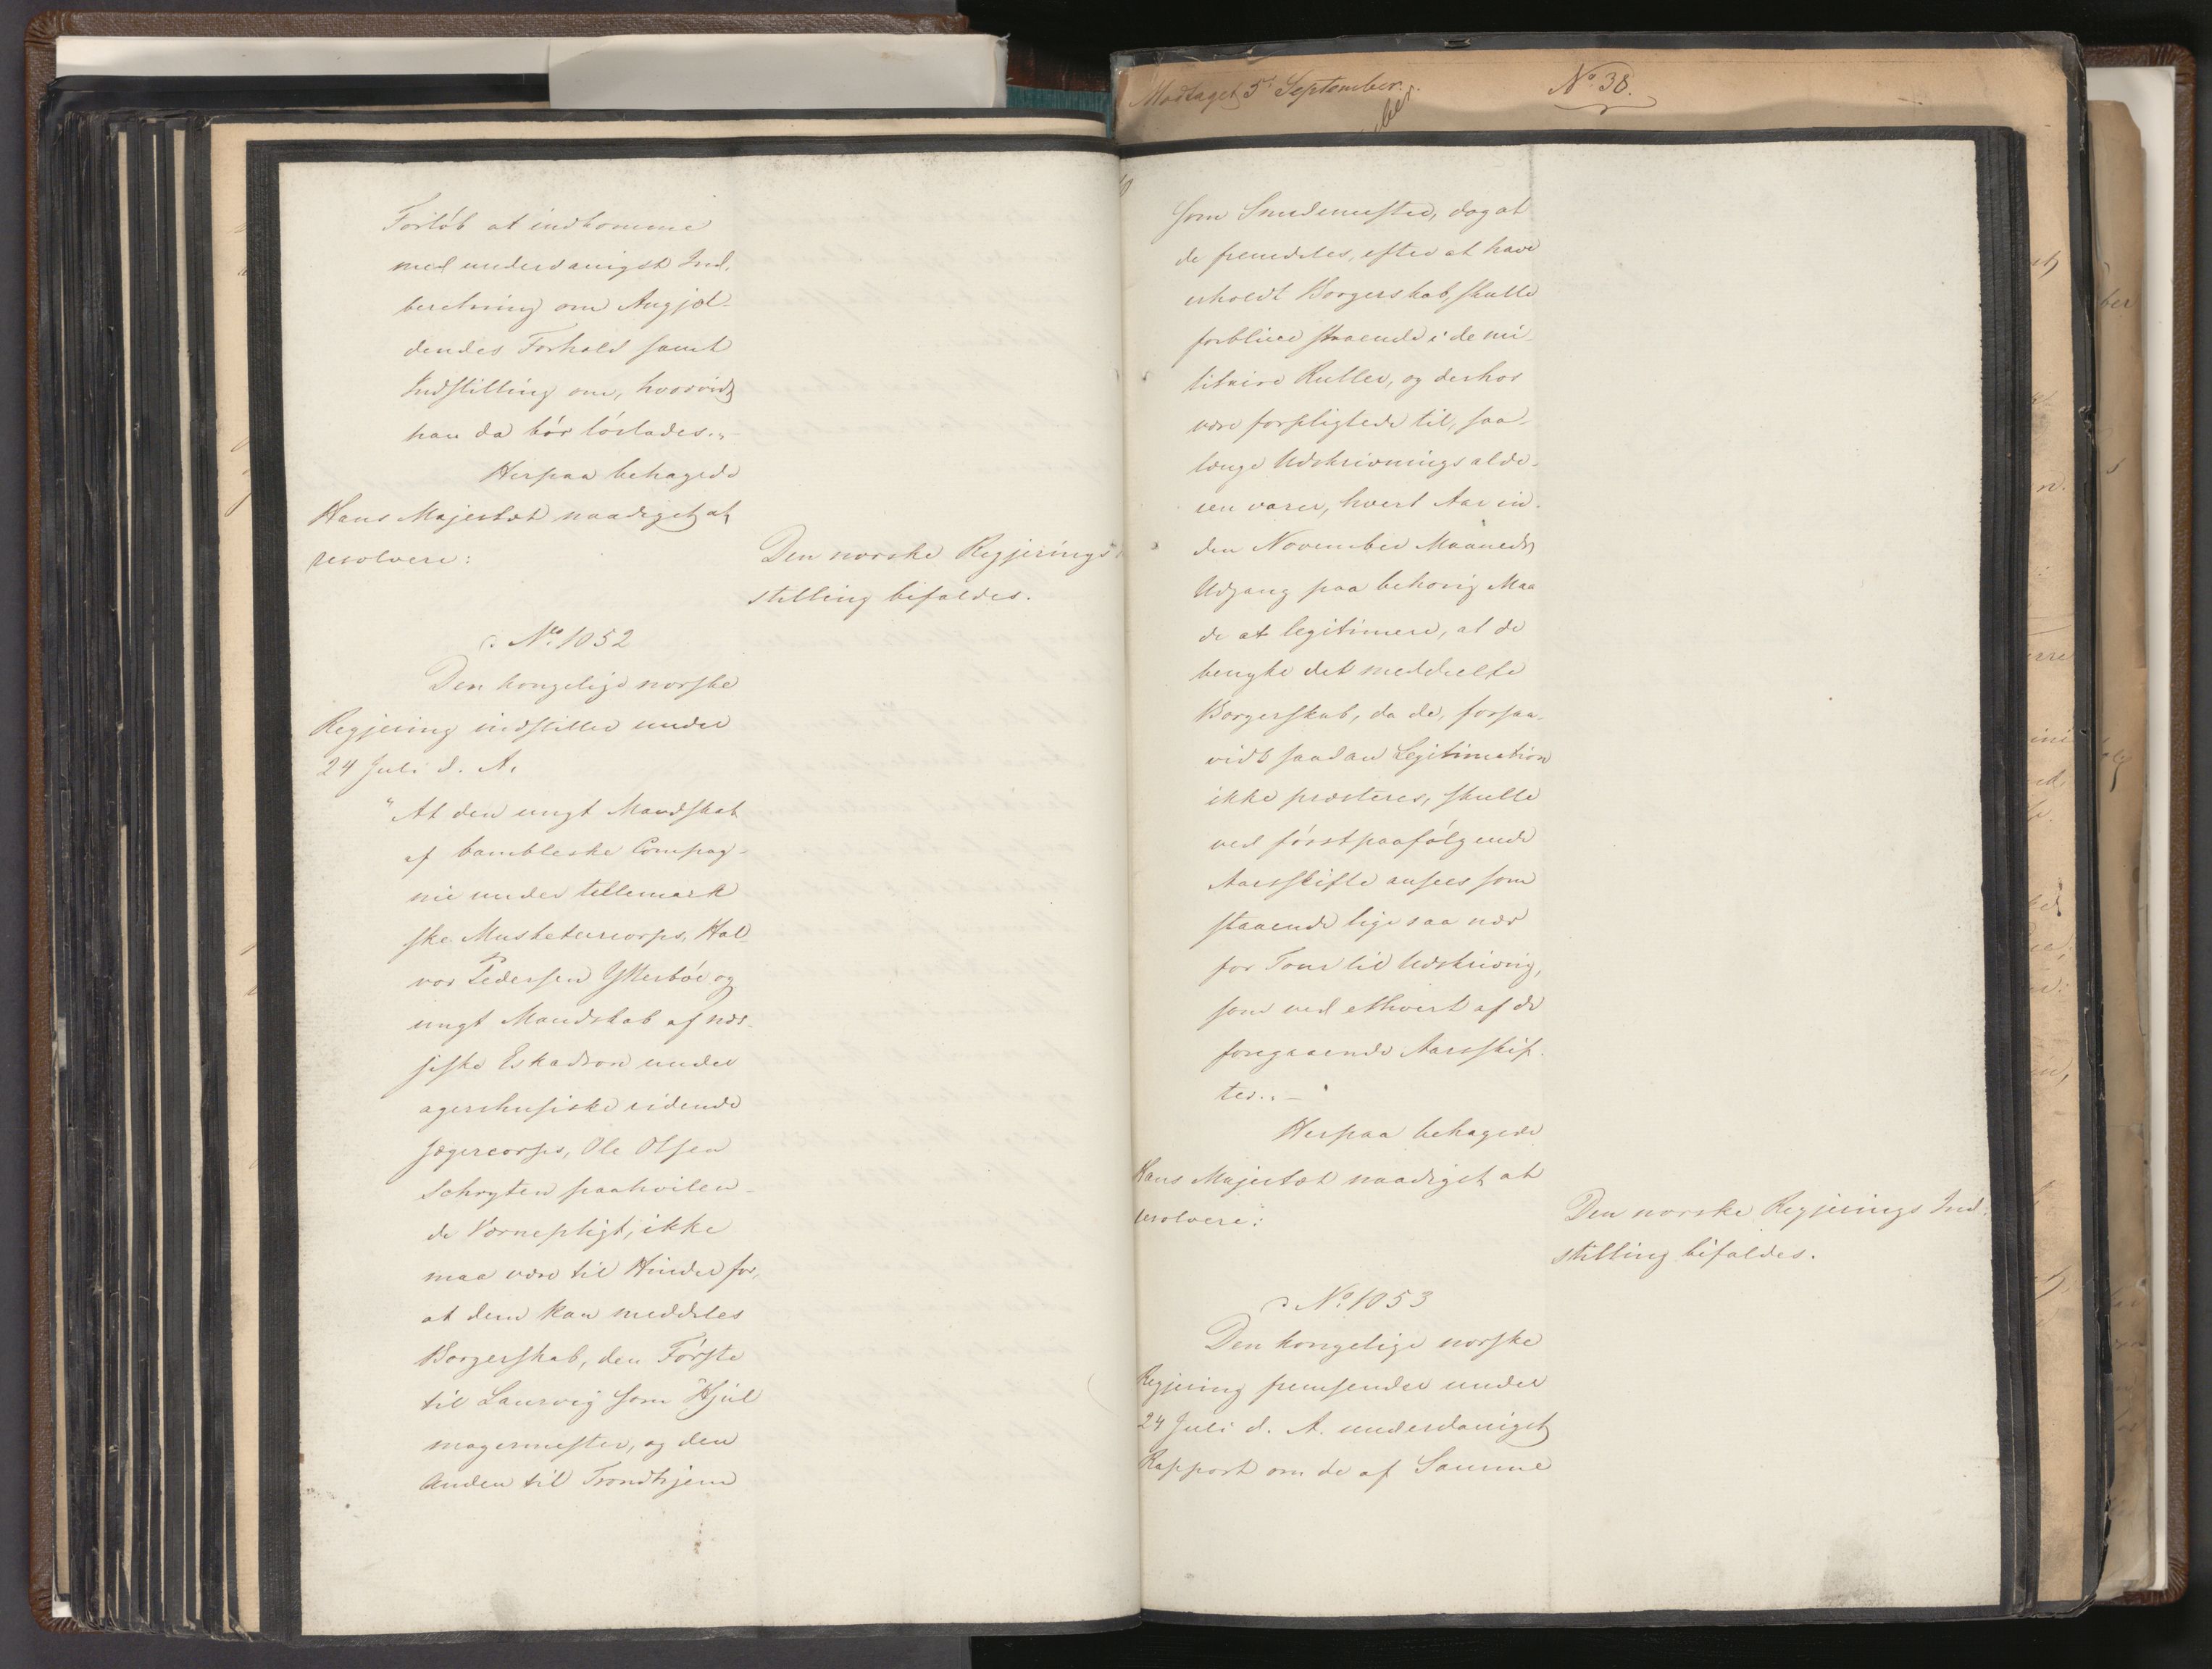 Forløb at indkomme
med underdanigst Ind-
beretning om Angjæl-
dendes Forhold samt
Indstilling om, hvorvidt
han da bør løslades."
Herpaa behagede
Hans Majestæt naadigst at
resolvere:
Den norske Regjerings
stilling bifaldes.
No 1052
Den kongelige norske
Regjering indstiller under
24 Juli d. A.
"At den ungt Mandskab
af bambleske Compag-
nie under tellemark
ske Musketeercorps, Hal
vor Pedersen Ytterböe og
ungt Mandskab af næs-
siske Eskadron under
agershusiske ridende
Jægercorps, Ole Olsen
Schryten paahvilen-
de Værnepligt, ikke
maa være til Hinder for,
at dem kan meddeles
Borgerskab, den Første
til Laurvig som Hjul
magermester, og den
Anden til Trondhjem
Modtaget 5t September.
No 38.
ber
som Smedemester, dog at
de fremdeles, efter at have
erholdt Borgerskab, skulle
forblive staaende i de mi-
litaire Ruller, og derhos
være forpligtede til, saa-
længe Udskrivningsalde-
ren varer, hvert Aar in-
den November Maaneds
Udgang paa behørig Maa
de at legitimere, at de
benytte det meddeelte
Borgerskab, da de, forsaa-
vidt saadan Legitimation
ikke præsteres, skulle
ved førstpaafølgende
Aarsskifte ansees som
staaende ligesaa nær
for Tour til Udskrivnig,
som ved ethvert af de
foregaaende Aarsskif-
ter." —
Herpaa behagede
Hans Majestæt naadigst at
resolvere:
Den norske Regjerings Ind-
stilling bifaldes.
No 1053
Den kongelige norske
Regjering fremsender under
24 Juli d. A. underdanigst
Rapport om de af Samme